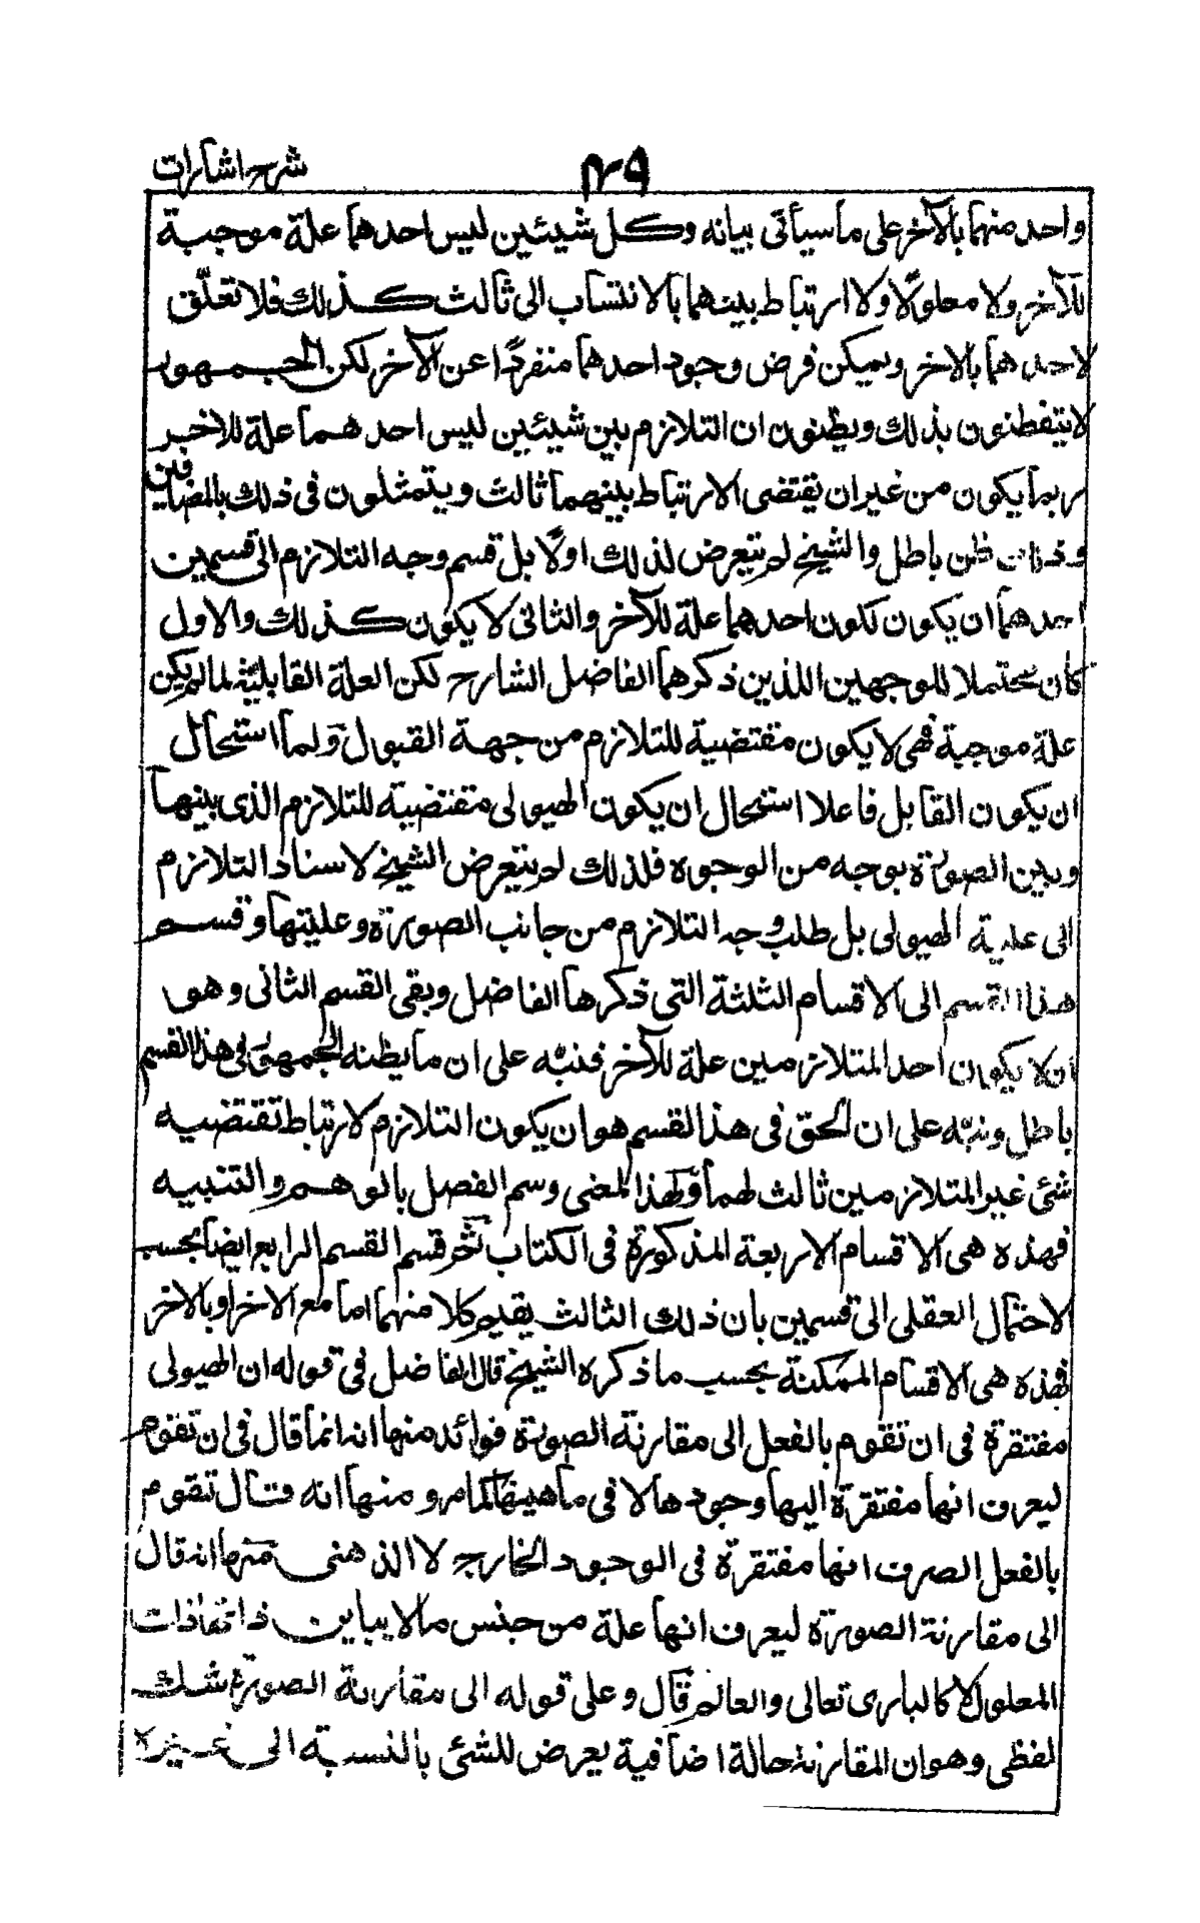 شرح اشارات
۴۹
واحد منهما بالآخر على ما سيأتى بيانه وكل شيئين ليس احدهما علة موجبة
للآخر ولا معلولًا ولا ارتباط بينهما بالانتساب الى ثالث كذلك فلا تعلّق
لاحدهما بالاخر ويمكن فرض وجود احدهما منفردًا عن الآخر لكن الجمهور
لا يتفطنون بذلك ويظنون ان التلازم بين شيئين ليس احدهما علة للاخر
ربما يكون من غير ان يقتضى الارتباط بينهما ثالث ويتمثلون فى ذلك بالمضايفين
وذلك ظن باطل والشيخ لم يتعرض لذلك اولًا بل قسم وجه التلازم الى قسمين
احدهما ان يكون لكون احدهما علة للآخر والثانى لا يكون كذلك والاول
كان محتملا للوجهين اللذين ذكرهما الفاضل الشارح لكن العلة القابلية لما لم يكن
علة موجبة فهى لا يكون مقتضية للتلازم من جهة القبول ولما استحال
ان يكون القابل فاعلا استحال ان يكون الهيولى مقتضية للتلازم الذى بينها
وبين الصورة بوجه من الوجوه فلذلك لم يتعرض الشيخ لاسناد التلازم
الى علية الهيولى بل طلب وجه التلازم من جانب الصورة وعليتها وقسم
هذا القسم الى الاقسام الثلثة التى ذكرها الفاضل وبقى القسم الثانى وهو
ان لا يكون احد المتلازمين علة للآخر فنبّه على ان ما يظنه الجمهور فى هذا القسم
باطل ونبّه على ان الحق فى هذا القسم هو ان يكون التلازم لارتباط تقتضيه
شئ غير المتلازمين ثالث لهما ولهذا المعنى وسم الفصل بالوهم والتنبيه
فهذه هى الاقسام الاربعة المذكورة فى الكتاب ثم قسم القسم الرابع ايضا بحسب
الاحتمال العقلى الى قسمين بان ذلك الثالث يقيم كلا منهما اما مع الاخر او بالاخر
فهذه هى الاقسام الممكنة بحسب ما ذكره الشيخ قال الفاضل فى قوله ان الهيولى
مفتقرة فى ان تقوم بالفعل الى مقارنة الصورة فوائد منها انه انما قال فى ان تقوم
ليعرف انها مفتقرة اليها وجودها لا فى ماهيتها كما مر ومنها انه قال تقوم
بالفعل الصرف انها مفتقرة فى الوجود الخارجى لا الذهنى ومنها انه قال
الى مقارنة الصورة ليعرف انها علة من جنس ما لا يباين ذاتها ذات
المعلول لا كالبارى تعالى والعالم قال وعلى قوله الى مقارنة الصورة شك
لفظى وهو ان المقارنة حالة اضافية يعرض للشئ بالنسبة الى غيره